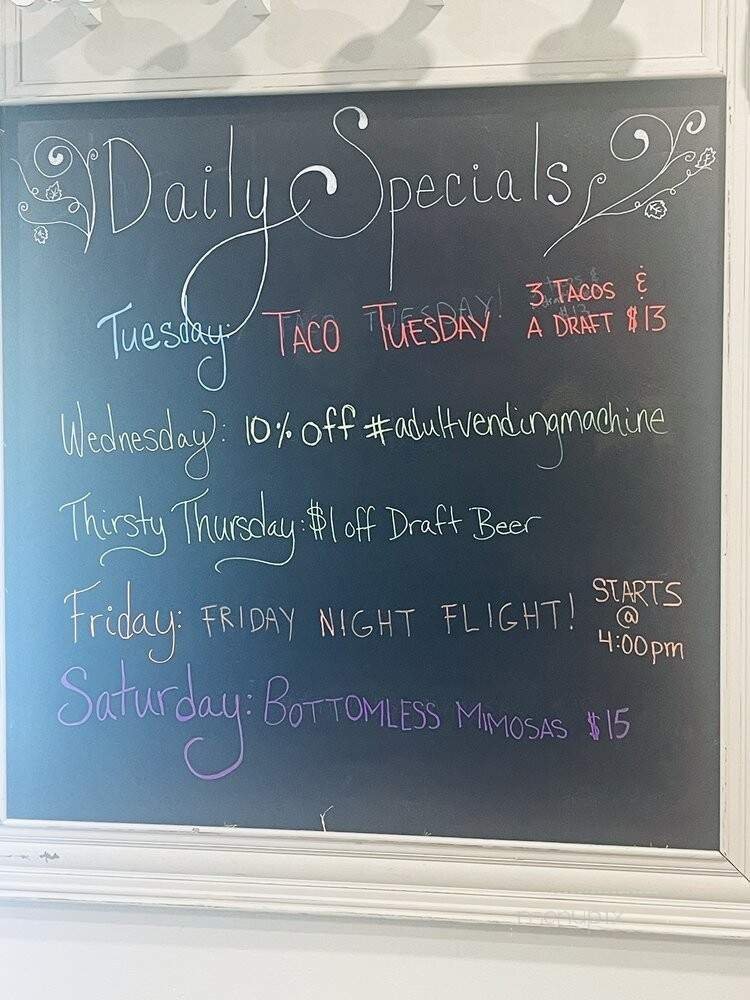 Daily Specials
Tuesday: TACO TUESDAY 3 TACOS & A DRAFT $13
Wednesday: 10% off #adultvendingmachine
Thirsty Thursday: $1 off Draft Beer
Friday: FRIDAY NIGHT FLIGHT! STARTS @ 4:00pm
Saturday: BOTTOMLESS MIMOSAS $15